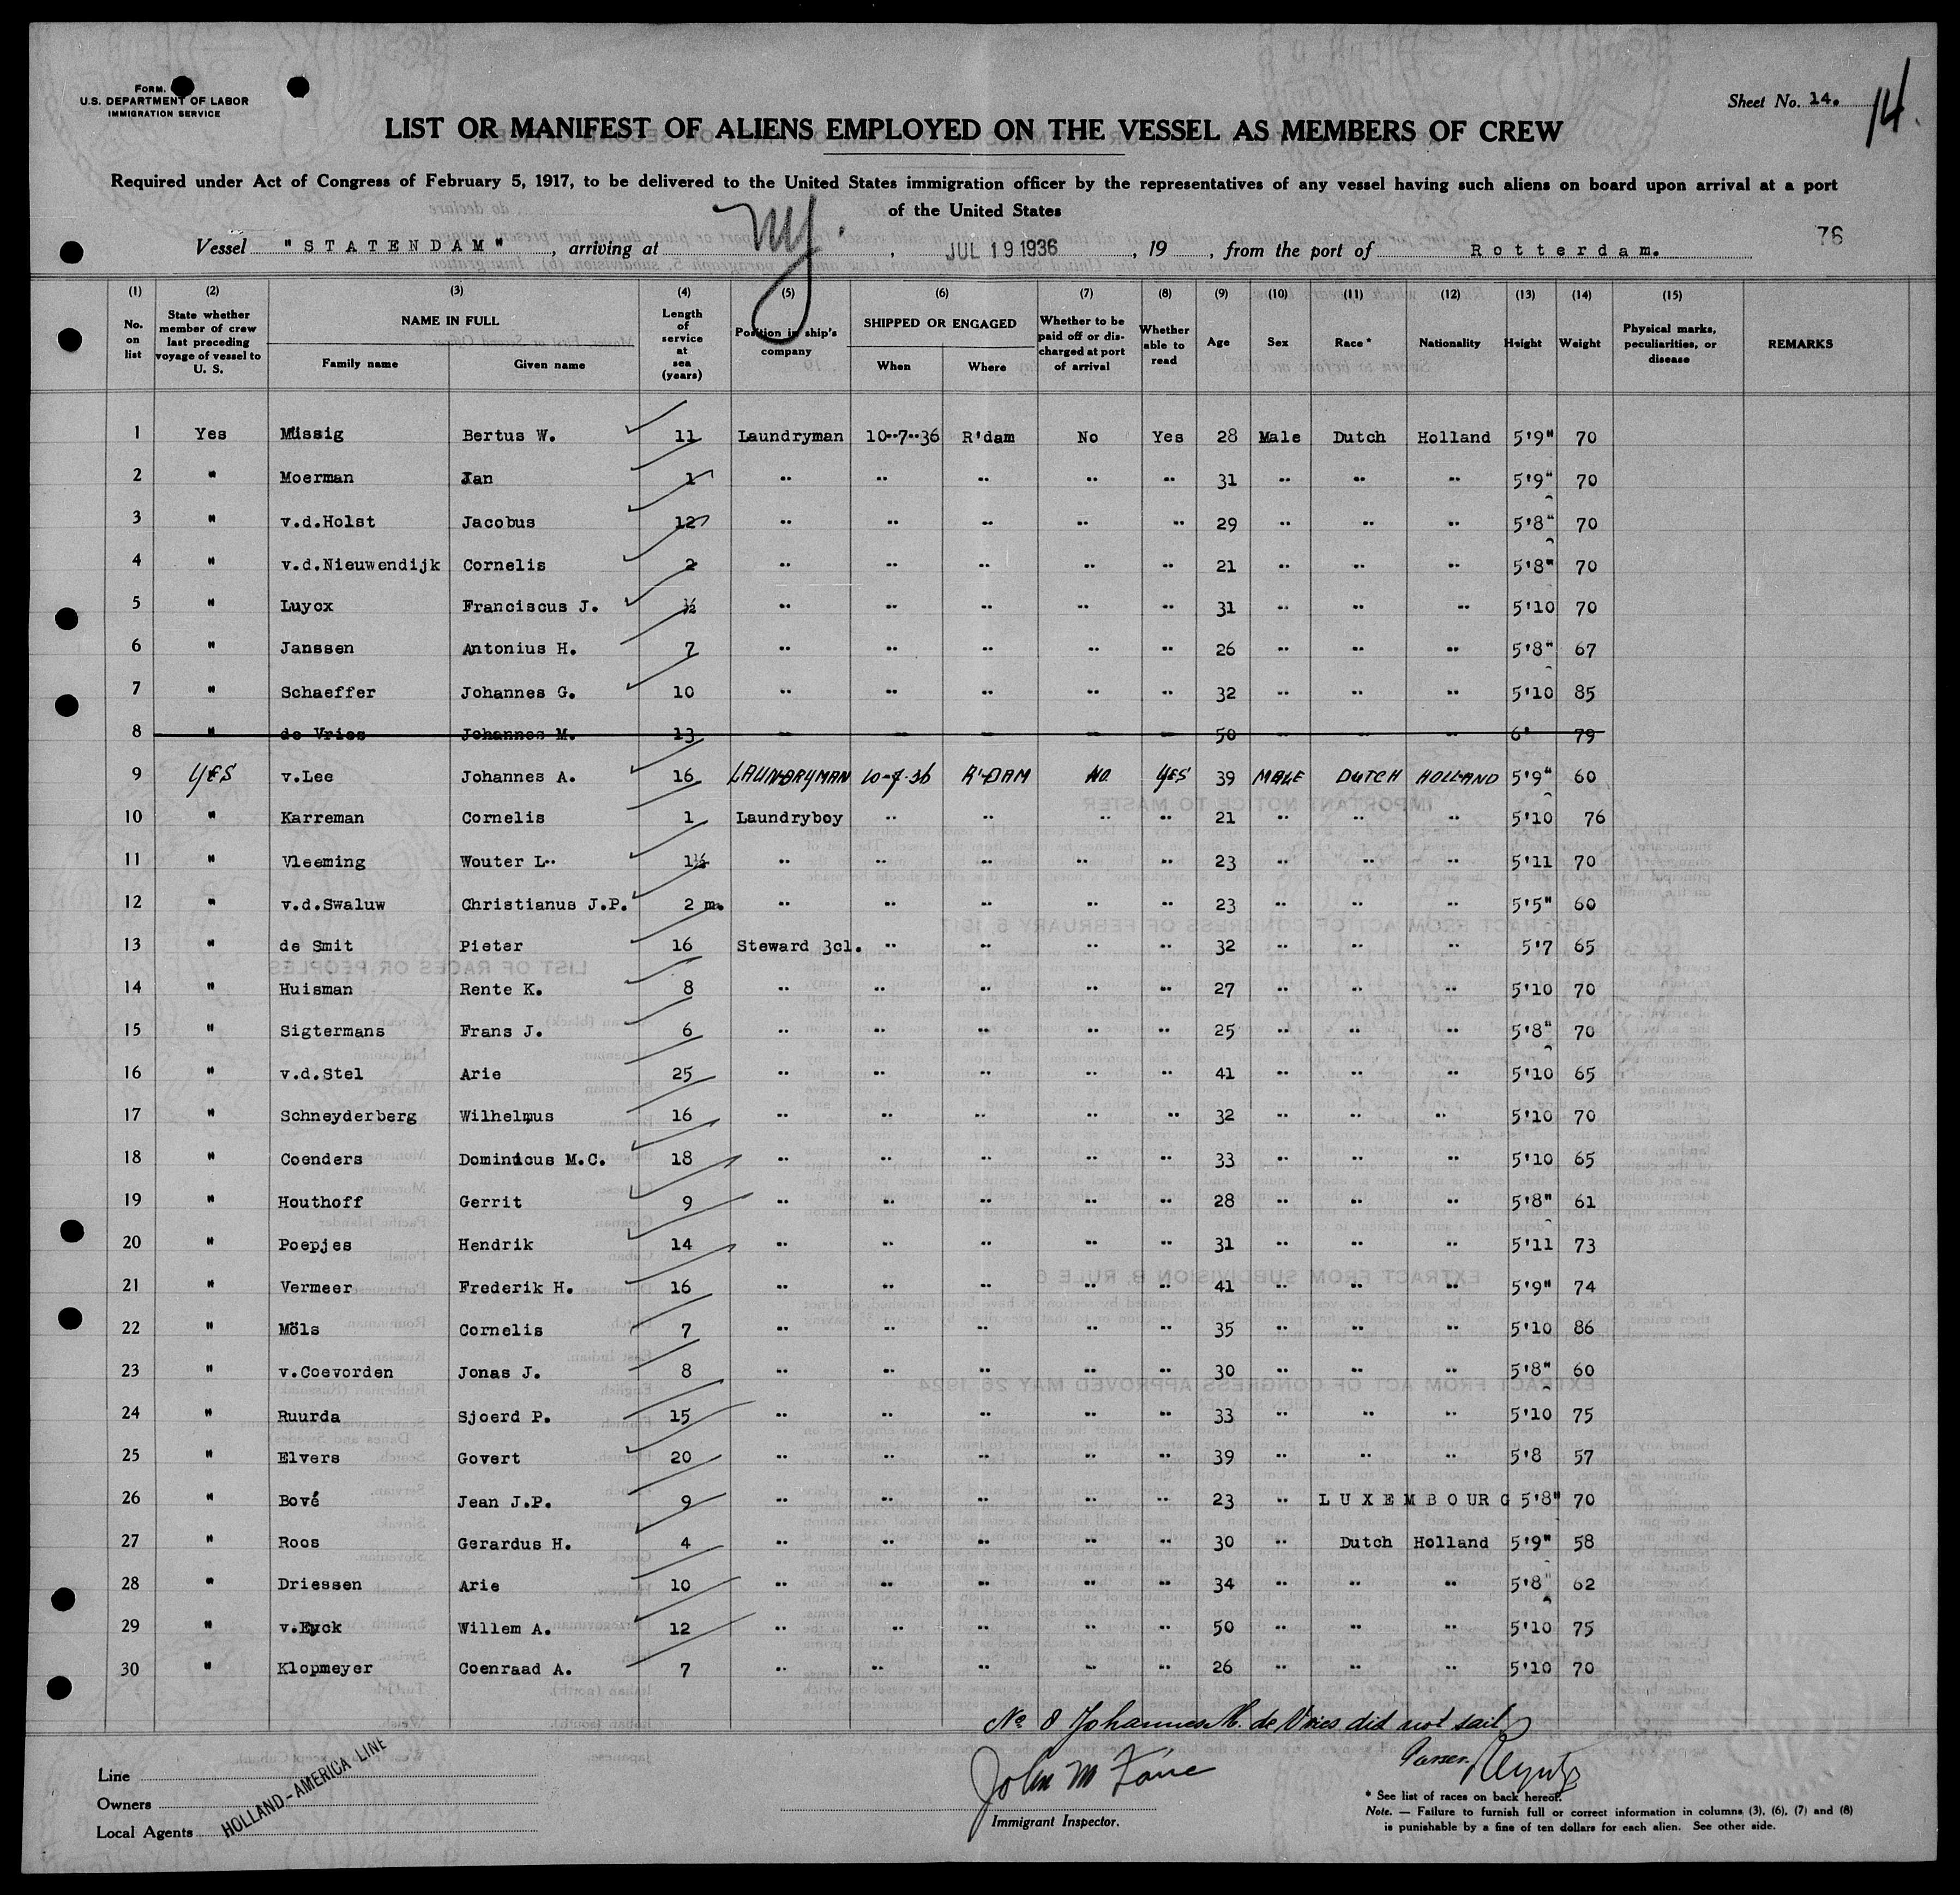 FORM.
U.S. DEPARTMENT OF LABOR
IMMIGRATION SERVICE
Sheet No. 14.
14.
LIST OR MANIFEST OF ALIENS EMPLOYED ON THE VESSEL AS MEMBERS OF CREW
Required under Act of Congress of February 5, 1917, to be delivered to the United States immigration officer by the representatives of any vessel having such aliens on board upon arrival at a port
of the United States
Vessel "STATENDAM", arriving at NY., JUL 19 1936, 19 , from the port of Rotterdam.
76
(1) (2) (3) (4) (5) (6) (7) (8) (9) (10) (11) (12) (13) (14) (15)
No. on list State whether member of crew last preceding voyage of vessel to U. S. NAME IN FULL Family name Given name Length of service at sea (years) Position in ship's company SHIPPED OR ENGAGED When Where Whether to be paid off or discharged at port of arrival Whether able to read Age Sex Race* Nationality Height Weight Physical marks, peculiarities, or disease REMARKS
1 Yes Müssig Bertus W. 11 Laundryman 10-7-36 R'dam No Yes 28 Male Dutch Holland 5'9" 70
2 " Moerman Jan 1 " " " " " 31 " " " 5'9" 70
3 " v.d.Holst Jacobus 12 " " " " " 29 " " " 5'8" 70
4 " v.d.Nieuwendijk Cornelis 2 " " " " " 21 " " " 5'8" 70
5 " Luycx Franciscus J. ½ " " " " " 31 " " " 5'10 70
6 " Janssen Antonius H. 7 " " " " " 26 " " " 5'8" 67
7 " Schaeffer Johannes G. 10 " " " " " 32 " " " 5'10 85
8 " de Vries Johannes M. 13 " " " " " 50 " " " 6" 79
9 YES v.Lee Johannes A. 16 LAUNDRYMAN 10-7-36 R'DAM NO YES 39 MALE DUTCH HOLLAND 5'9" 60
10 " Karreman Cornelis 1 Laundryboy " " " " 21 " " " 5'10 76
11 " Vleeming Wouter L. 1½ " " " " " 23 " " " 5'11 70
12 " v.d.Swaluw Christianus J.P. 2 m. " " " " " 23 " " " 5'5" 60
13 " de Smit Pieter 16 Steward 3cl. " " " " 32 " " " 5'7 65
14 " Huisman Rente K. 8 " " " " " 27 " " " 5'10 70
15 " Sigtermans Frans J. 6 " " " " " 25 " " " 5'8" 70
16 " v.d.Stel Arie 25 " " " " " 41 " " " 5'10 65
17 " Schneyderberg Wilhelmus 16 " " " " " 32 " " " 5'10 70
18 " Coenders Dominicus M.C. 18 " " " " " 33 " " " 5'10 65
19 " Houthoff Gerrit 9 " " " " " 28 " " " 5'8" 61
20 " Poepjes Hendrik 14 " " " " " 31 " " " 5'11 73
21 " Vermeer Frederik H. 16 " " " " " 41 " " " 5'9" 74
22 " Möls Cornelis 7 " " " " " 35 " " " 5'10 86
23 " v.Coevorden Jonas J. 8 " " " " " 30 " " " 5'8" 60
24 " Ruurda Sjoerd P. 15 " " " " " 33 " " " 5'10 75
25 " Elvers Govert 20 " " " " " 39 " " " 5'8 57
26 " Bové Jean J.P. 9 " " " " " 23 " LUXEMBOURG 5'8" 70
27 " Roos Gerardus H. 4 " " " " " 30 " Dutch Holland 5'9" 58
28 " Driessen Arie 10 " " " " " 34 " " " 5'8" 62
29 " v.Eyck Willem A. 12 " " " " " 50 " " " 5'10 75
30 " Klopmeyer Coenraad A. 7 " " " " " 26 " " " 5'10 70
No 8 Johannes M. de Vries did not sail
Purser.
Line
Owners
Local Agents
HOLLAND-AMERICA LINE
John M
Immigrant Inspector.
* See list of races on back hereof.
Note. — Failure to furnish full or correct information in columns (3), (6), (7) and (8)
is punishable by a fine of ten dollars for each alien. See other side.